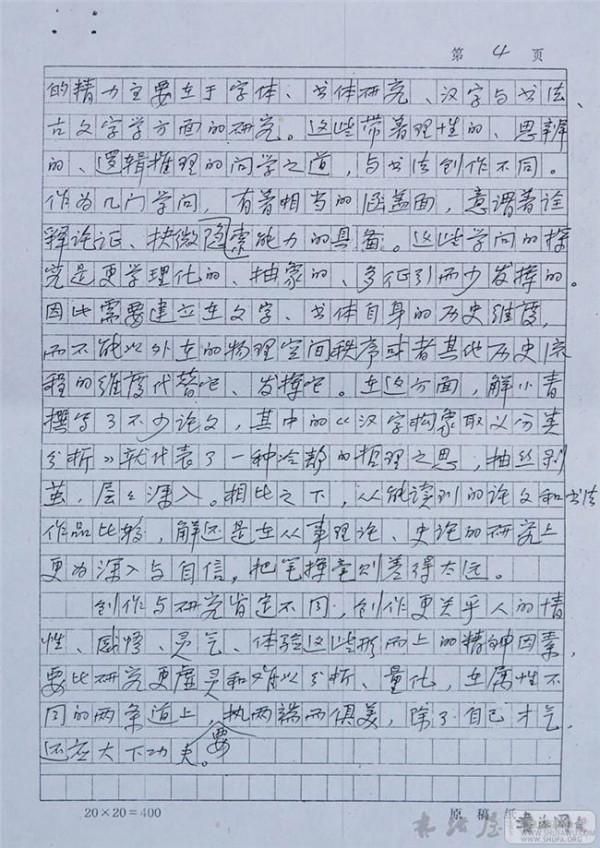 第 4 页
的精力主要在于字体、书体研究、汉字与书法、
古文字学方面的研究。这些带着理性的、思辨
的、逻辑推理的问学之道，与书法创作不同。
作为几门学问，有着相当的涵盖面，意谓着诠
释许证、抉微隐索能力的具备。这些学问的探
究是更学理化的、抽象的、多征引而少发挥的。
因此需要建立在文字、书体自身的历史维度，
而不能以外在的物理空间秩序或者其他历史流
程的维度代替吧、发挥吧。在这方面，解小青
撰写了不少论文，其中的《汉字构象取义分类
分析》就代表了一种冷静的哲理之思，抽丝剥
茧，层层深入。相比之下，从能读到的论文和书法
作品比较，解还是在从事理论、史论的研究上
更为深入与自信，把笔挥毫则差得太远。
创作与研究肯定不同，创作更关乎人的情
性、感悟、灵气、体验这些形而上的精神因素，
要比研究更虚灵和难以分析、量化，在属性不
同的两条道上，执两端而俱美，除了自己才气，
还应大下功夫。要
20×20=400
原稿纸
书法屋
书法网
WWW.SHUFA.ORG